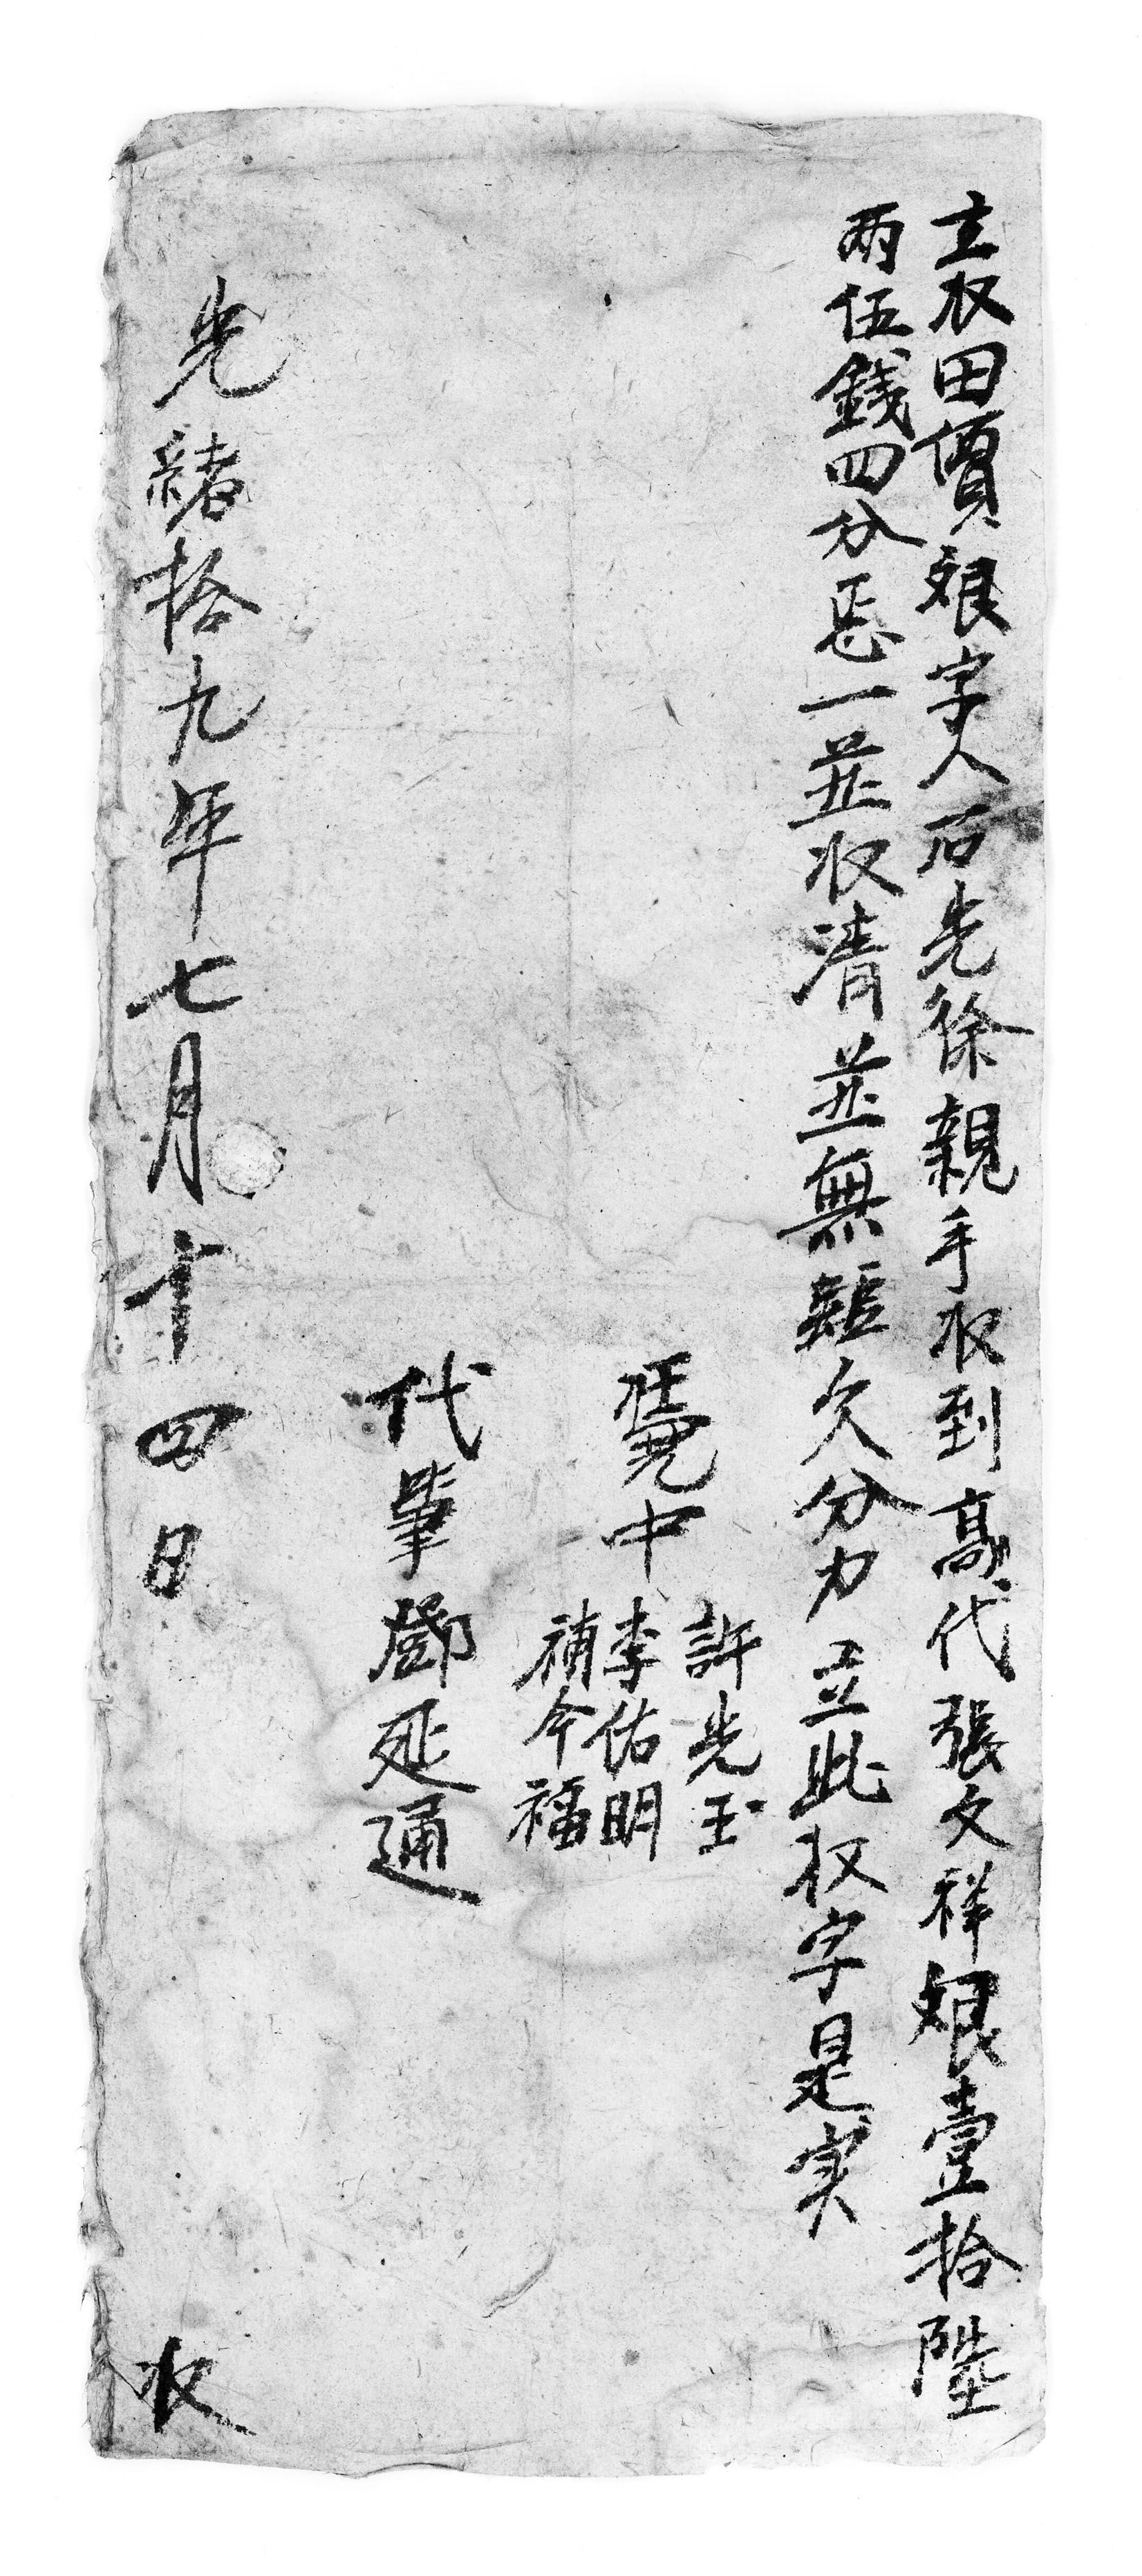 立收田價銀字人石先徐親手收到高代張文祥銀壹拾陸
兩伍錢四分忥一並收清並無短欠分力立此收字是実
憑中
許光玉
李佑明
補今福
代筆鄧延通
光緒拾九年七月十四日 收